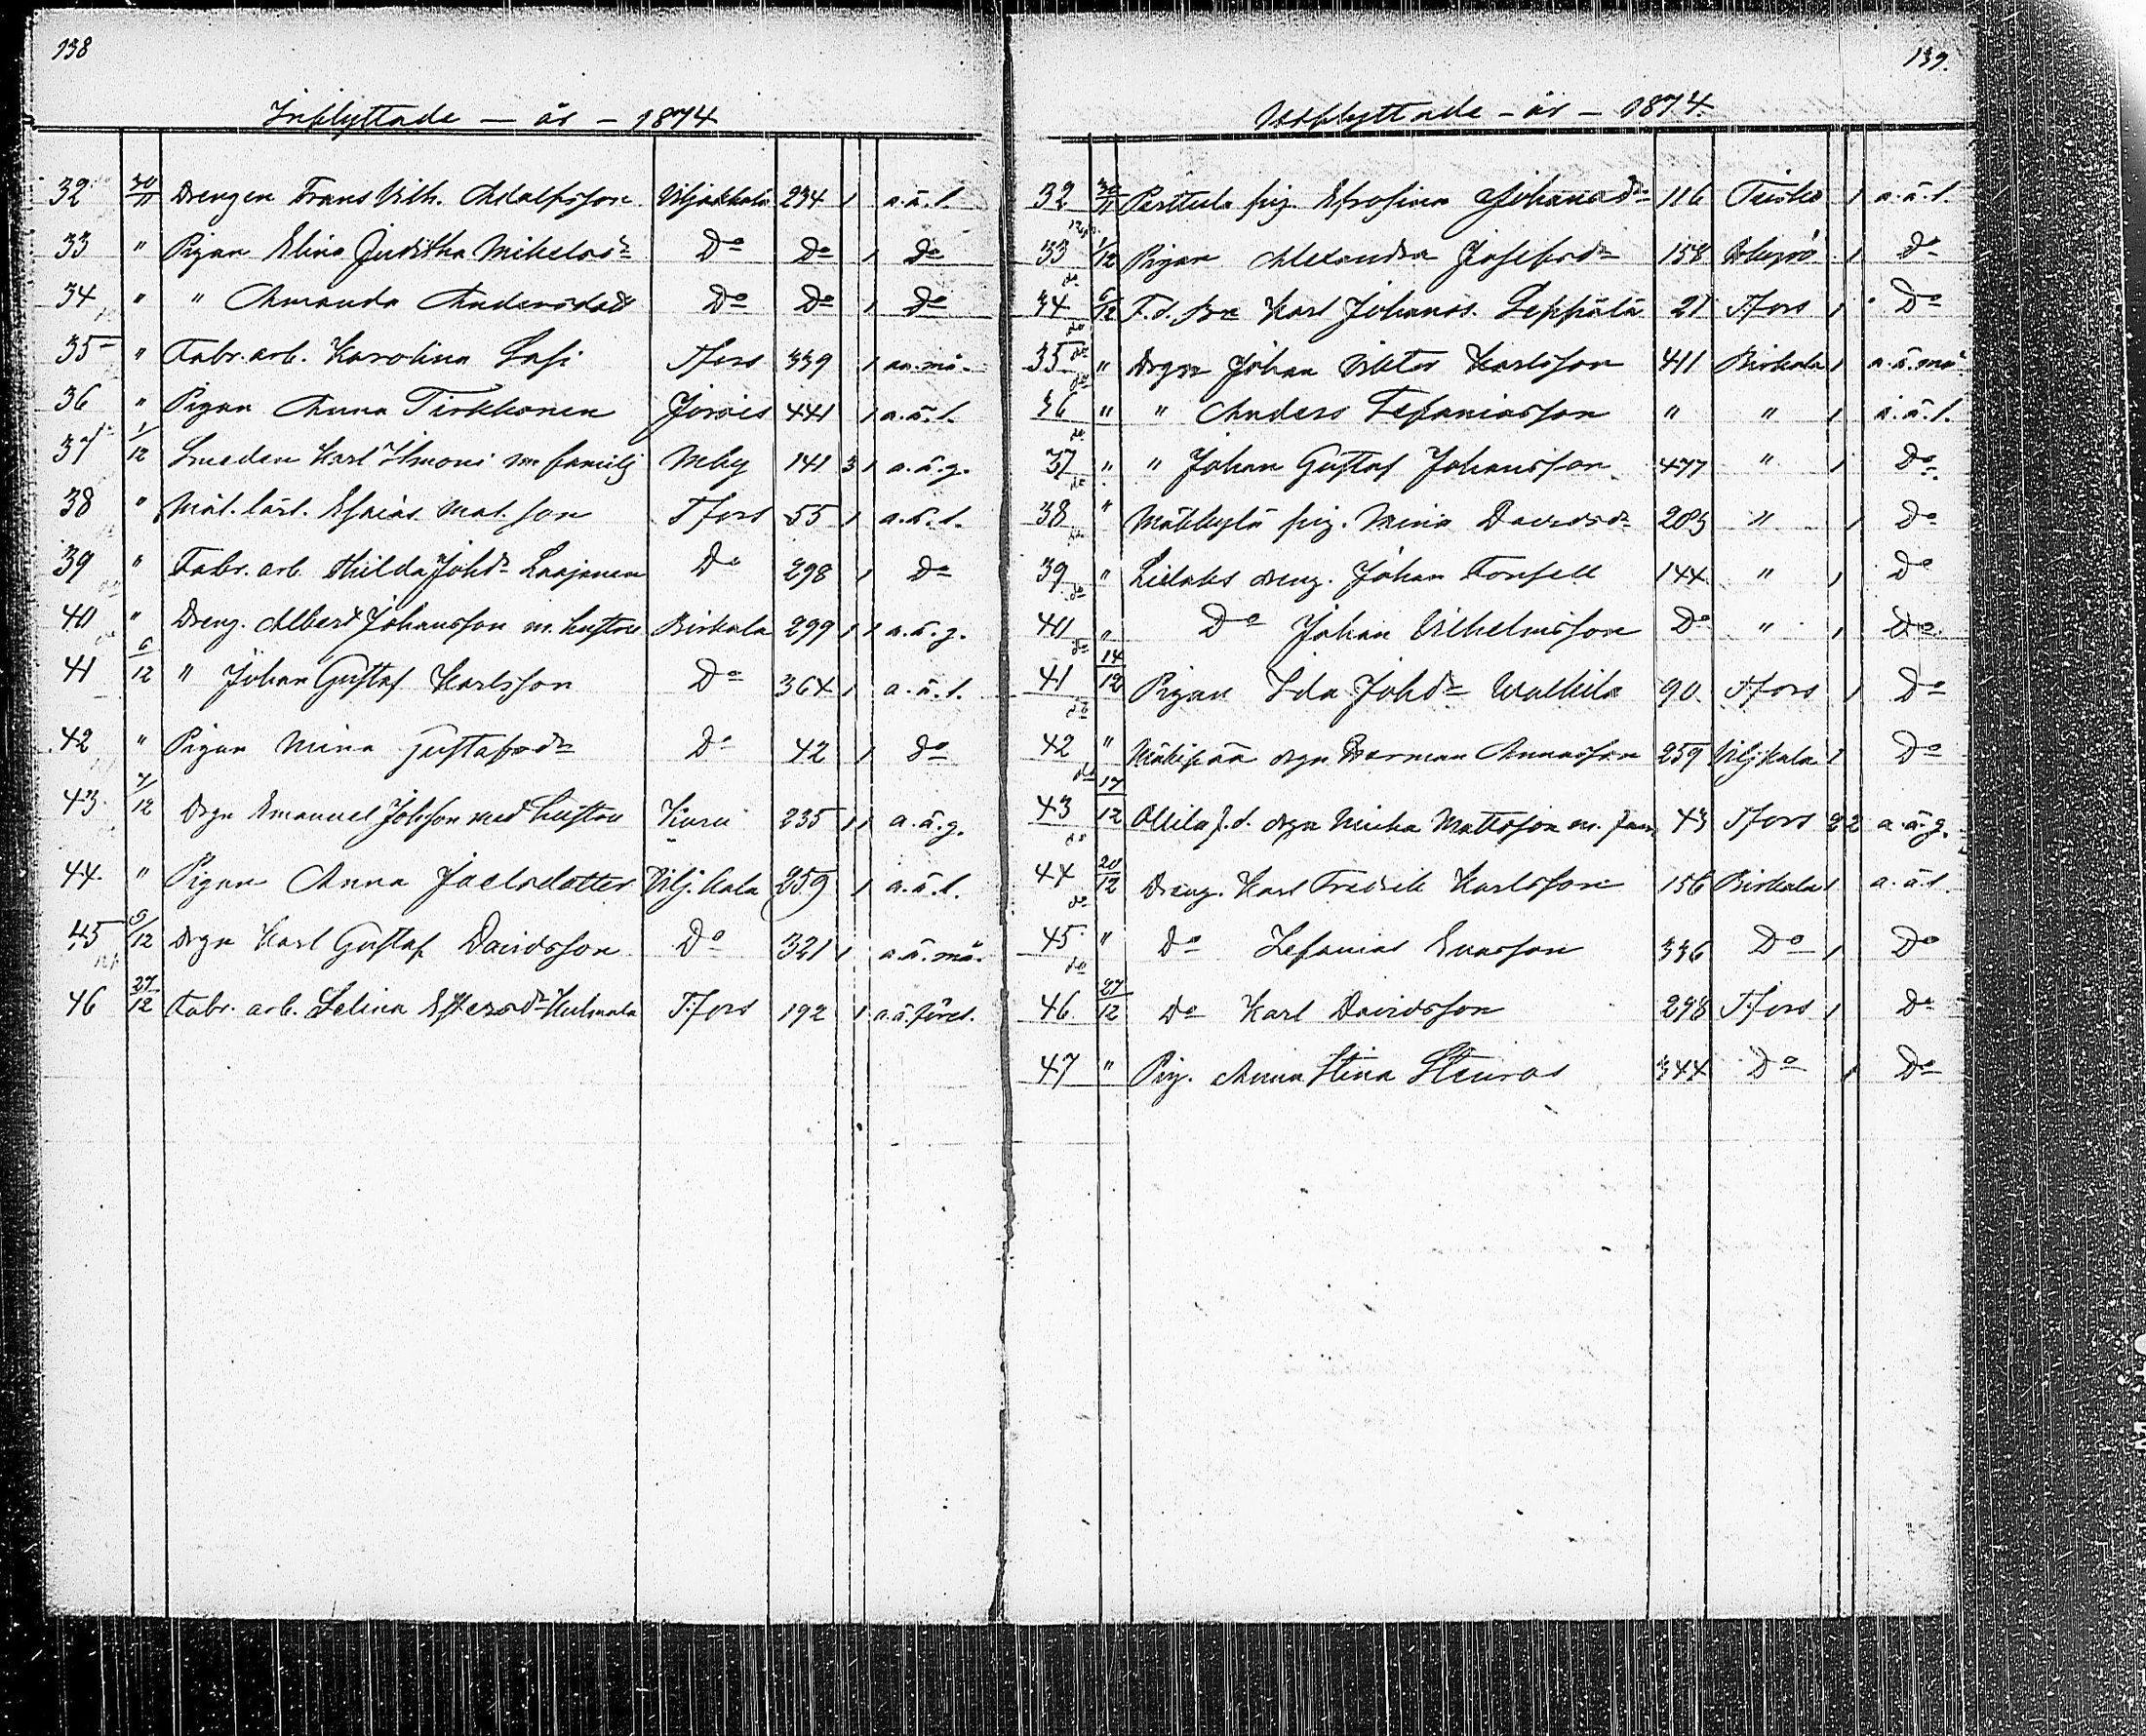 138
Inflyttade – år – 1874
32 30/11 Drengen Frans Vilh. Adolfsson Viljakkala 234 1 a.ä.l.
33 " Pigan Elina Juditha Mikelsdr Do Do 1 Do
34 " " Amanda Andersdotr Do Do 1 Do
35 " Fabr. arb. Karolina Lasi Tfors 339 1 an.mä.
36 " Pigan Anna Tirkkonen Jorois 441 1 a.ä.l.
37 1/12 Smeden Karl Ilmoni m familj Mby 141 3 1 a.ä.g.
38 " Mål. lärl. Esaias Mat. son Tfors 55 1 a.ä.l.
39 " Fabr. arb. Hilda Johdr Laajanen Do 298 1 Do
40 " Dreng. Albert Johansson m. hustru Birkala 299 1 1 a.ä.g.
41 6/12 " Johan Gustaf Karlsson Do 364 1 a.ä.l.
42 " Pigan Mina Gustafsdr Do 42 1 do
43 7/12 Drgn Emanuel Jobsson med hustru Kuru 235 1 1 a.ä.g.
44. " Pigan Anna Joelsdotter Vilj.kala 259 1 a.ä.l.
45 9/12 Drgn Karl Gustaf Davidsson Do 321 1 a.ä.mä.
46 27/12 Fabr. arb. Selina Estersdr Hulmala T.fors 192 1 a.ä.förel.
139.
Utflyttade – år – 1874.
32 30/11 Perttula pig. Efrosina Johansdr 116 1 a.ä.l.
33 1/12 Pigan Alexandra Josefsdr 158 1 Do
34 6/12 F.d. Karl Johanss. Seppälä 21 Tfors 1 Do
35 " Drgn Johan Viktor Karlsson 411 Birkala 1 a.ä.mä
36 " " Anders Sefaniasson " " 1 a.ä.l.
37 " " Johan Gustaf Johansson 477 " 1 Do
38 " Mäkkylä pig. Mina Davidsdr 203 " 1 Do
39 " Lielaks dreng. Johan Forsell 144 " 1 Do
40 " Do Johan Vilhelmsson Do " 1 Do
41 14/12 Pigan Ida Johdr Walkila 90 Tfors 1 Do
42 " Mäkipää drgn Herman Annasson 259 Viljkala 1 Do
43 17/12 Ollila f.d. drgn Micka Mattsson m. fam 43 Tfors 2 2 a.ä.g.
44 20/12 Dreng. Karl Fredrik Karlsson 156 Birkala 1 a.ä.l.
45 " Do Sefanias Evasson 336 Do 1 Do
46. 27/12 Do Karl Davidsson 298 T.fors 1 Do
47 " Pig. Anna Stina Stenroos 344 Do 1 Do